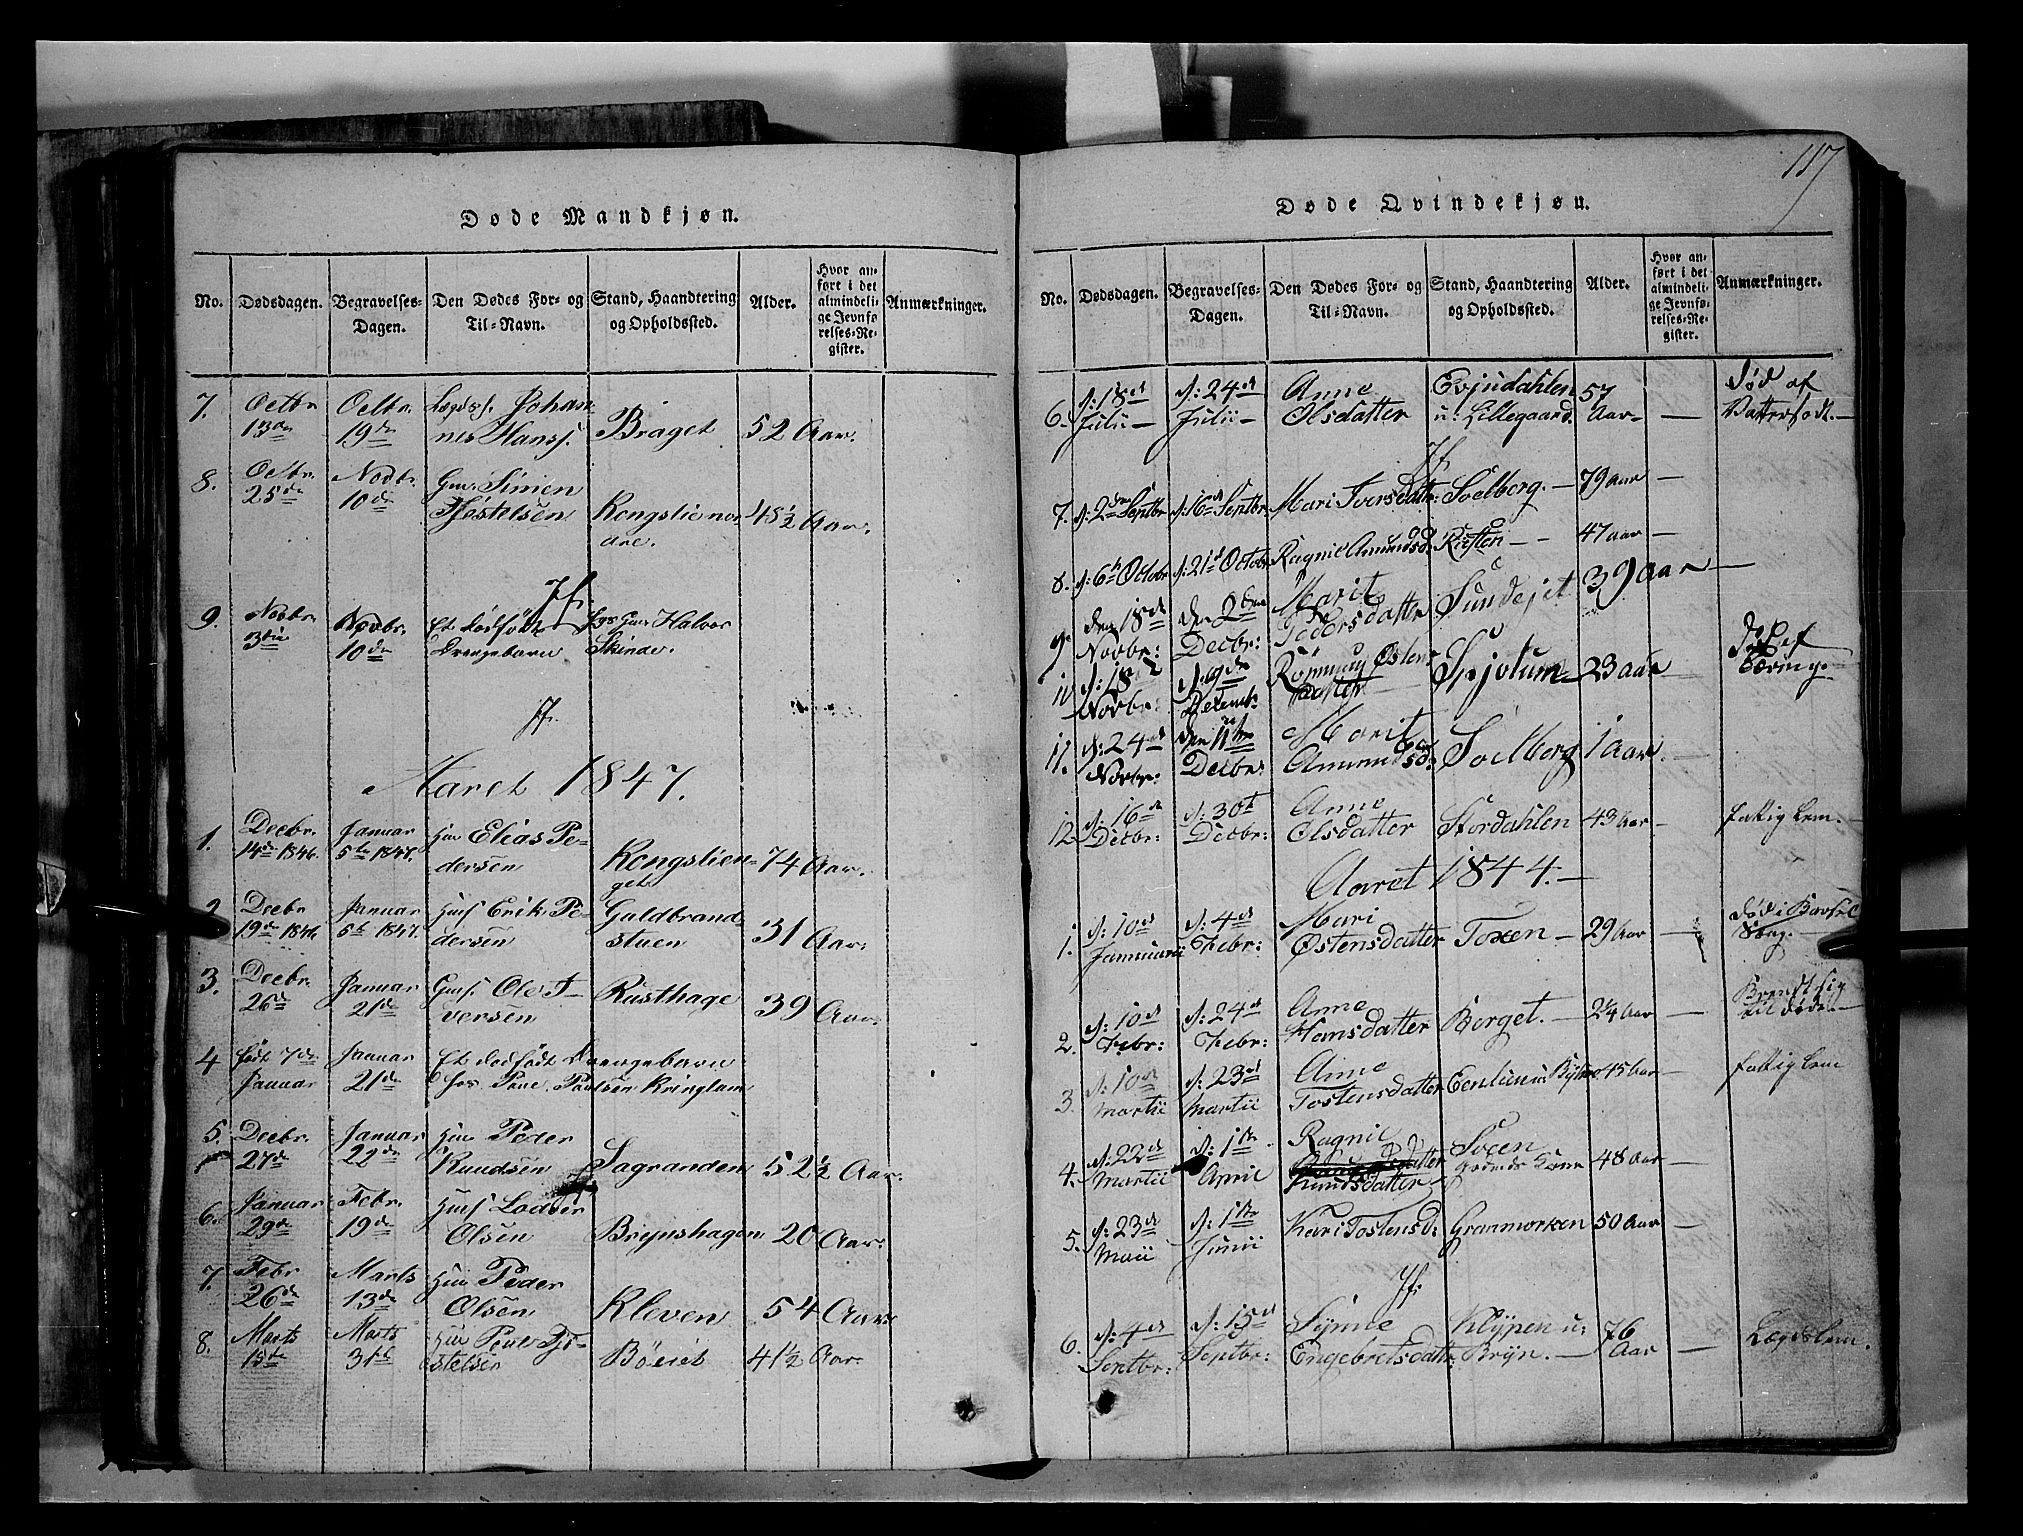 Døde Mandkjøn.
No. Dødsdagen. Begravelses-Dagen. Den Dødes For- og Til-Navn. Stand, Haandtering og Opholdssted. Alder. Hvor anført i det almindelige Jevnførelses-Register. Anmærkninger.
7. Octbr. 13de Octbr. 19de Lægdsl. Johannes Hanss. Braget 52 Aar.
8. Octbr. 25de Novbr. 10de Gm. Simen Kjøstelsen Kongslienor 45½ Aar.
9. Novbr. 3die Novbr. 10de Et dødfødt Drengebarn hos Gm. Halvor Skinde.
Aaret 1847.
1. Decbr. 14de 1846. Januar 5te 1847. Hm Elias Pedersen Kongslien 74 Aar.
2. Decbr 19de 1846. Januar 5te 1847. Huusf. Erik Pedersen Guldbrandstuen 31 Aar.
3. Decbr. 26de Januar 21de Ole Iversen Rusthage 39 Aar.
4 født 7de Januar Januar 21de Et dødfødt Drengebarn hos Povel Paulsen Kringlem
5. Decbr. 27de Januar 22de Hm Peder Knudsen Sagranden 52½ Aar.
6. Januar 29de Febr. 19de Olsen Brynshagen 20 Aar.
7. Febr 26de Marts 13de Hm Peder Olsen Kleven 54 Aar
8. Marts 15de Marts 31te Hm Povel Tjøstelsen Bøeiet 41½ Aar.
117
Døde Qvindekjøn.
No. Dødsdagen. Begravelses-Dagen. Den Dødes For- og Til-Navn. Stand, Haandtering og Opholdssted. Alder. Hvor anført i det almindelige Jevnførelses-Register. Anmærkninger.
6. d: 18de Julii – d: 24de Julii – Anne Olsdatter Evjudahlen u: Lillegaard. 57 Aar – – død af Vattersodt. –
7. d: 2den Septbr d: 16de Septbr. Mari Iversdatter: Soelberg. – 79 aar –
8. d: 6te Octobr d: 21de Octobr Ragnil Amundsd. Kiesten – – 47 aar –
9. den 18de Novbr: den 2den Decbr: Marit Pedersdatter Sundejet 39 aar –
10 d: 18de Novbr: d: 9de Decembr: Østensdatter Spjotum – 23 aar –
11. d: 24de Novbr: den 11te Decbr: Marit Amundsd: Soelberg 1 aar. –
12 d: 16de Decbr: d: 30te Decbr: Anne Olsdatter Stordahlen 43 aar – fattig Lem. –
Aaret 1844. –
1. d: 10de Januarii d: 4de Febr: Mari Østensdatter Toxen – 29 aar – død i Barsel Seng. –
2. d: 10de Febr: d: 24de Febr: Anne Hansdatter Berget. – 24 aar – Brendt sig til døde. –
3. d: 10de Martii d: 23de Martii Anne Tostensdatter 45 aar – fattig Lem
4. d: 22de Martii d: 1te April Ragnil Knudsdatter Soeen Kone 48 aar –
5. d: 23de Maii d: 1te Junii Kari Tostensd: Granmorken 50 aar –
6. d: 4de Septbr: d: 15de Septbr: Synne Engebretsdatter Klypen u: Bryn. – 76 Aar – Lægdslem.